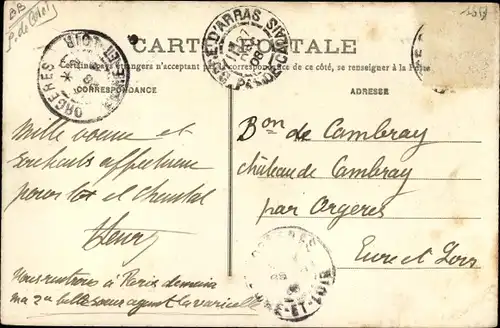 CARTE POSTALE
GARE D'ARRAS PAS-DE-CALAIS
08
ORGERES EURE-ET-LOIR
étrangers n'acceptant de correspondance de ce côté, se renseigner à la Poste
CORRESPONDANCE
ADRESSE
Mille voeux et
souhaits affectueux
pour toi et Chantal
Henry
Nous rentrons à Paris demain
ma 2e belle soeur ayant la varicelle
Bon de Cambray
château de Cambray
par Orgeres
Eure et Loir
EURE-ET-LOIR